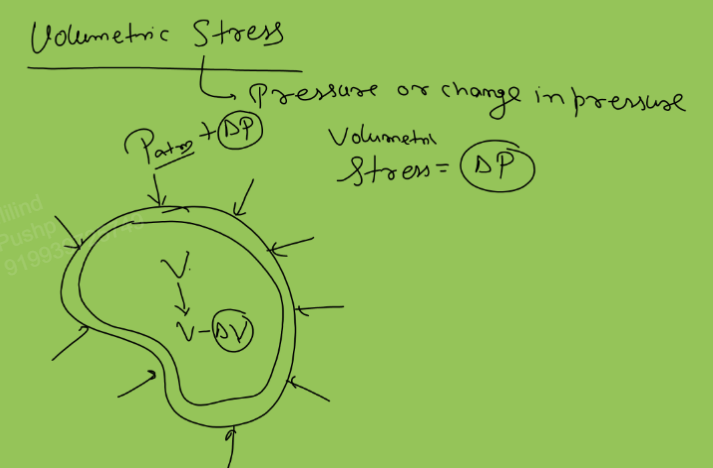 Volumetric Stress
Pressure or change in pressure
Patm + ΔP
Volumetri
Stress = ΔP
V
V - ΔV